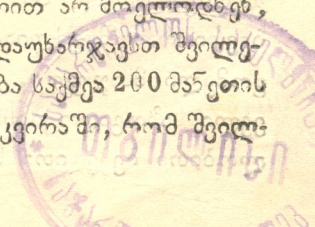 ით არ მოელოდნენ,
დაუხარჯავსთ შვილე-
ბა საქმეა 200 მანეთის
კვირაში, რომ შვილ-
თბილისი